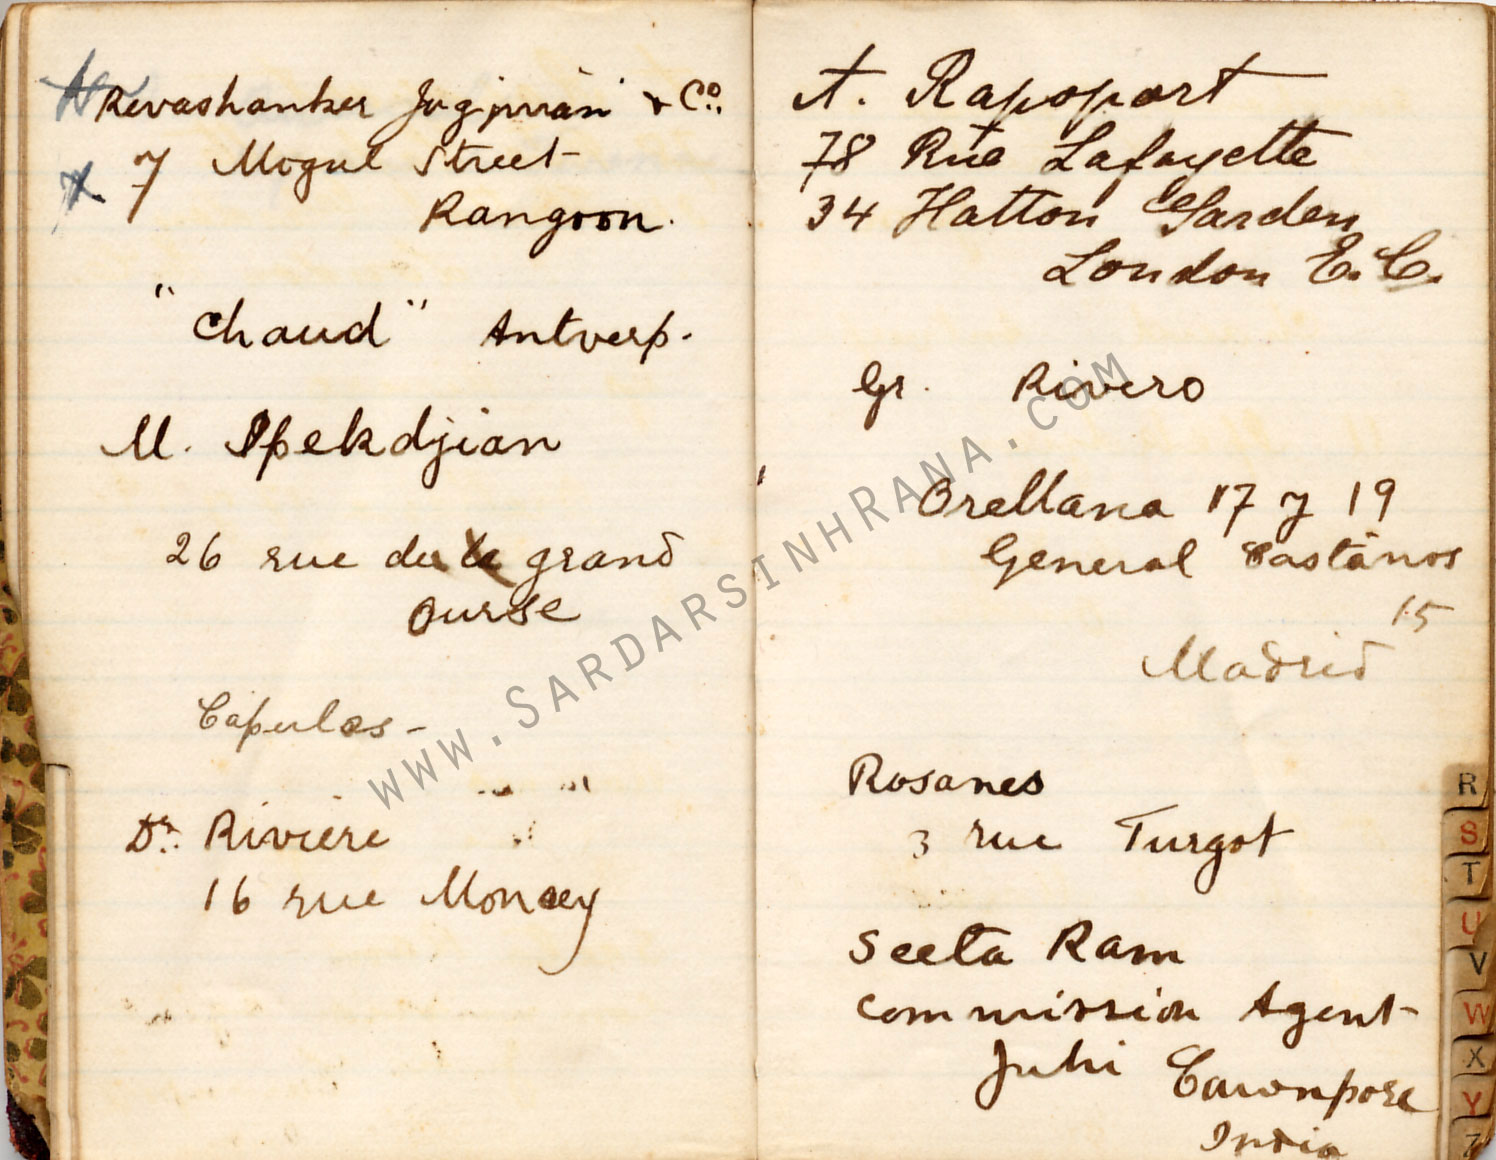 Revashanker Jugjivan & Co.
7 Mogul Street
Rangoon.
"Chaud" Antverp.
M. Ipekdjian
26 rue de la grand
ourse
Capulas -
Dr. Riviere
16 rue Moncey
A. Rapoport
78 Rue Lafayette
34 Hatton Garden
London E.C.
Gr. Rivero
Orellana 17 y 19
General Castãnos
15
Madrid
Rosanes
3 rue Turgot
Seeta Ram
Commission Agent
Juhi Cawnpore
India
R
S
T
U
V
W
X
Y
Z
WWW.SARDARSINHRANA.COM